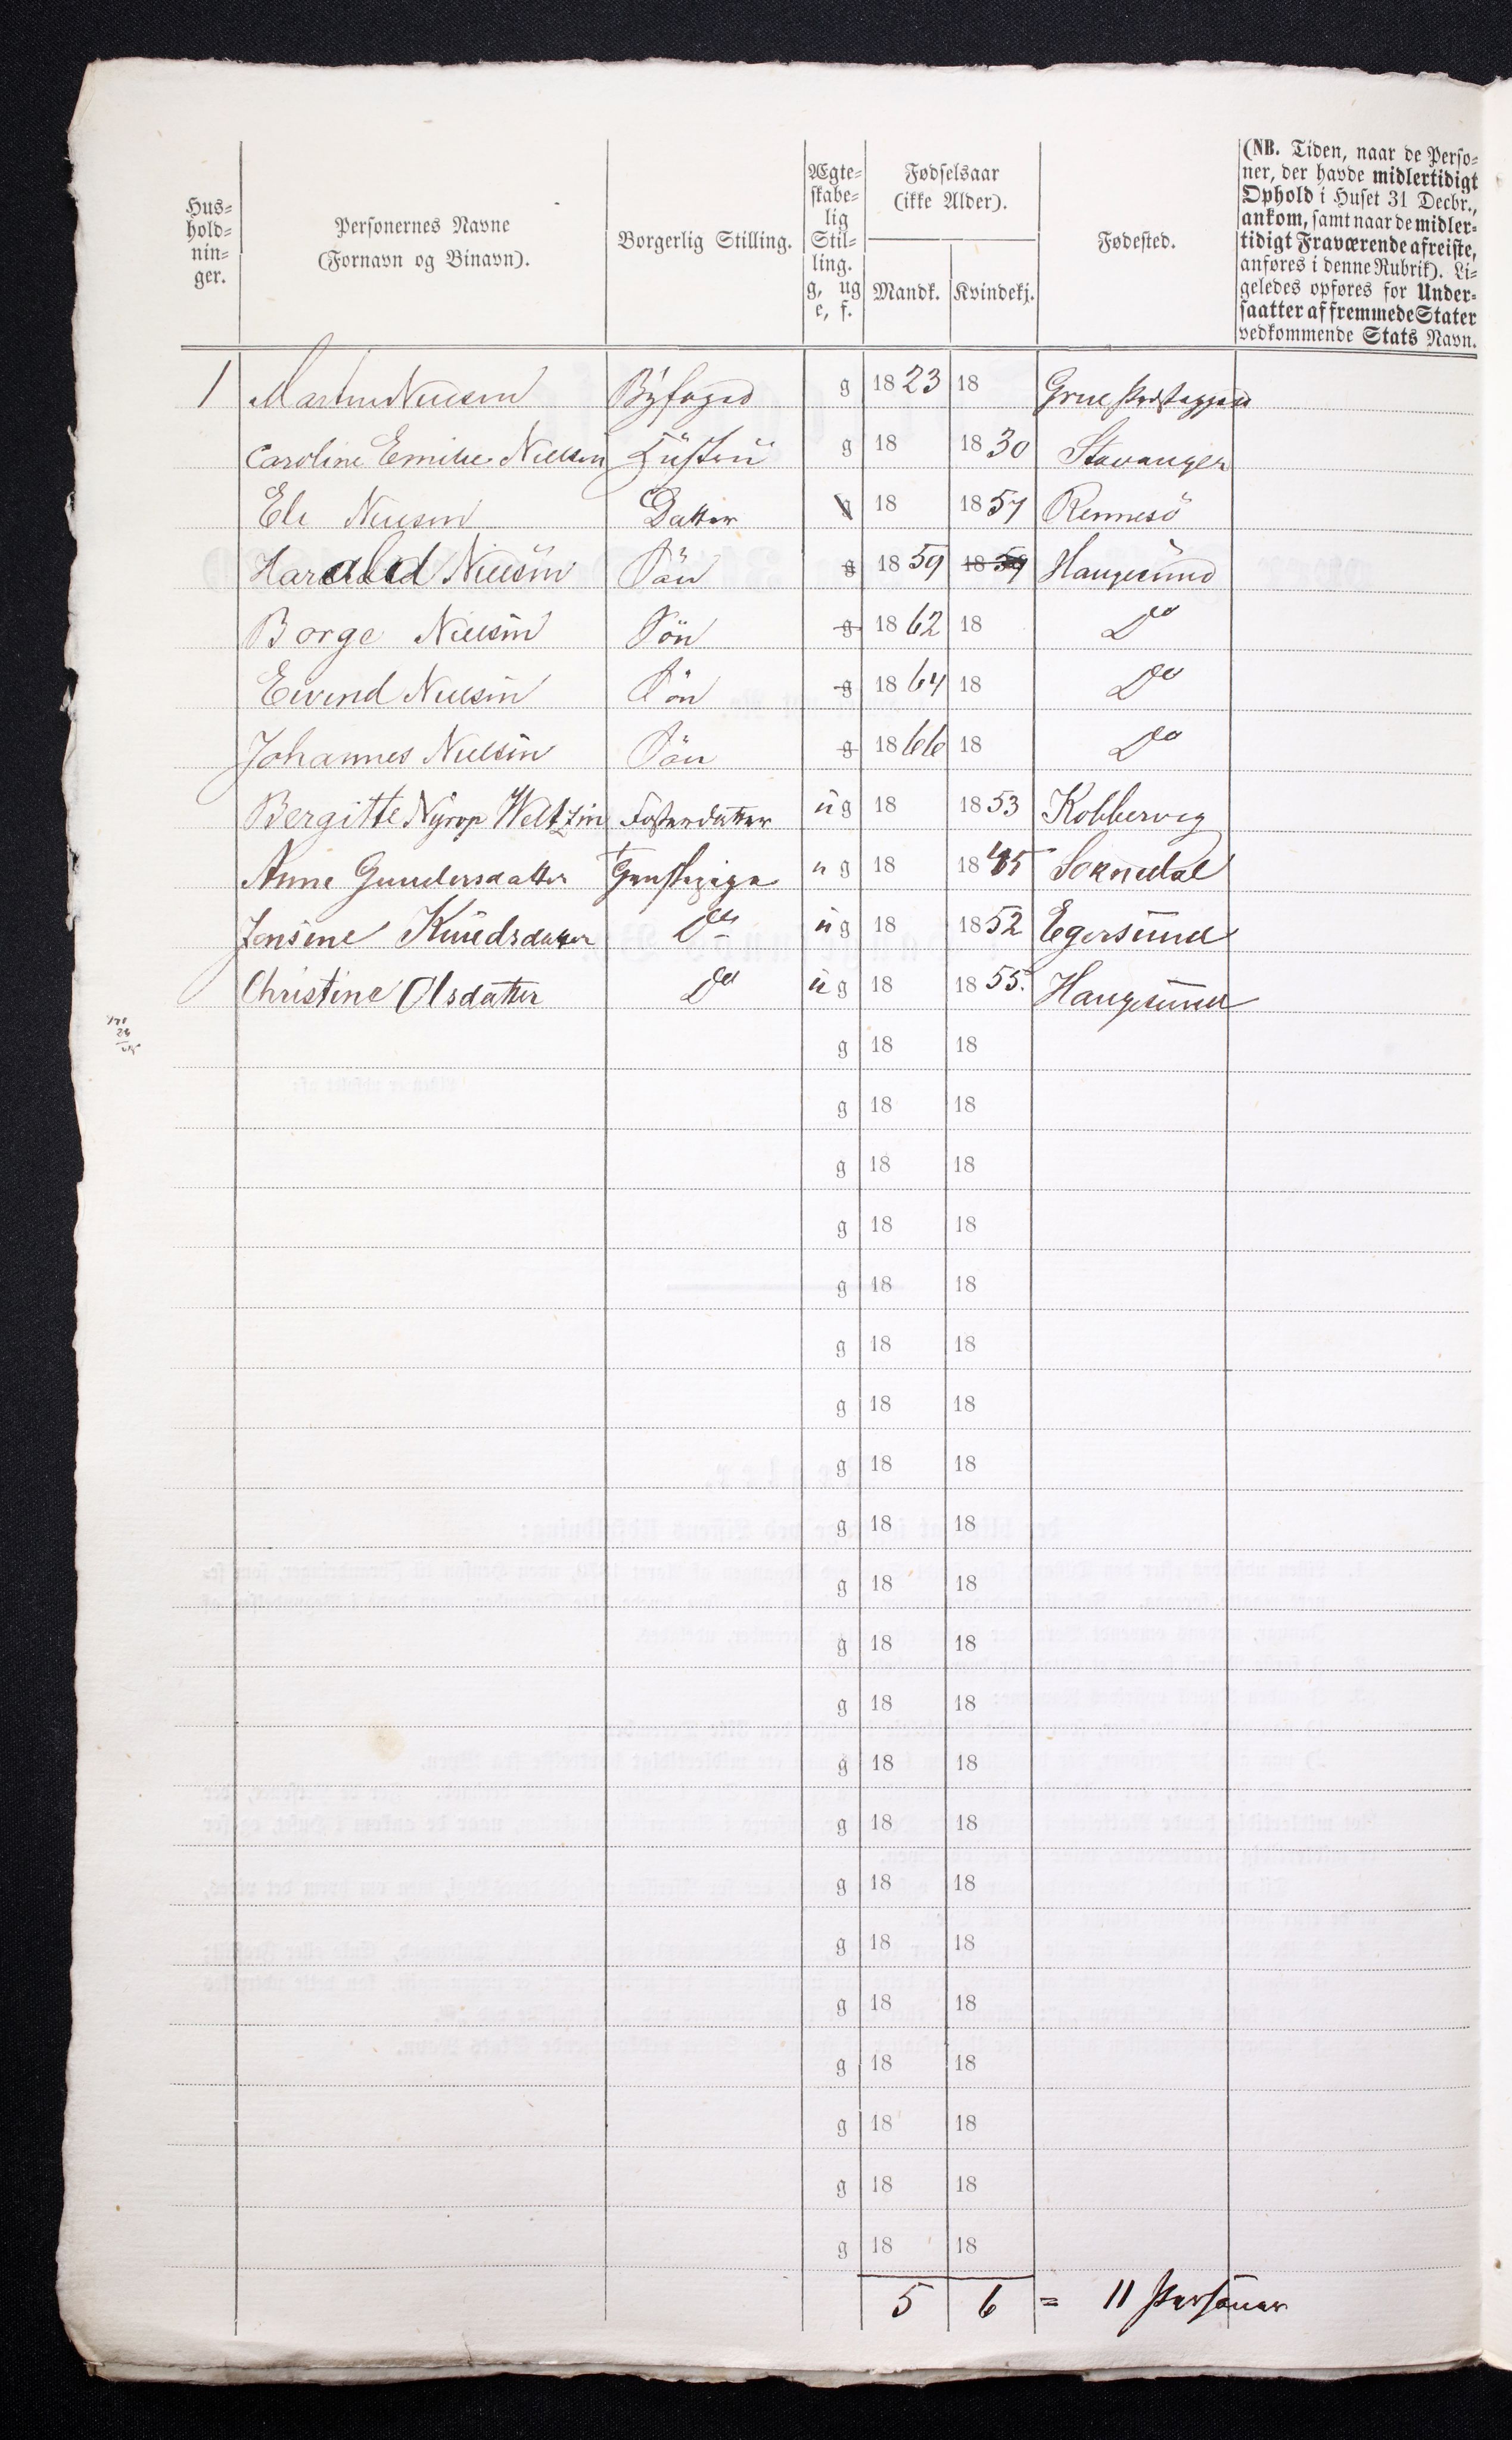 Hus-
hold-
nin-
ger.
Personernes Navne
(Fornavn og Binavn).
Borgerlig Stilling.
Ægte-
skabe-
lig
Stil-
ling.
g, ug
e, f.
Fødselsaar
(ikke Alder).
Mandk.
Kvindekj.
Fødested.
(NB. Tiden, naar de Perso-
ner, der havde midlertidigt
Ophold i Huset 31 Decbr.,
ankom, samt naar de midler-
tidigt Fraværende afreiste,
anføres i denne Rubrik). Li-
geledes opføres for Under-
saatter af fremmede Stater
vedkommende Stats Navn.
1 Martin Nielsen Byfoged g 1823 18 Grue Præstegjæld
Caroline Emilie Nielsen Hustru g 18 1830 Stavanger
Eli Nielsen Datter g 18 1857 Rennesö
Harald Nielsen Sön g 1859 1859 Haugesund
Borge Nielsen Sön g 1862 18 Do
Eivind Nielsen Sön g 1864 18 Do
Johannes Nielsen Sön g 1866 18 Do
Bergitte Nyrop Weltzin Fosterdatter ug 18 1853 Kobbervig
Anne Gundersdatter Tjenstepige ug 18 1845 Sokndal
Jensine Knudsdatter Do ug 18 1852 Egersund
Christine Olsdatter Do ug 18 1855. Haugesund
g 18 18
g 18 18
g 18 18
g 18 18
g 18 18
g 18 18
g 18 18
g 18 18
g 18 18
g 18 18
g 18 18
g 18 18
g 18 18
g 18 18
g 18 18
g 18 18
g 18 18
g 18 18
g 18 18
g 18 18
g 18 18
5 6 = 11 Personer